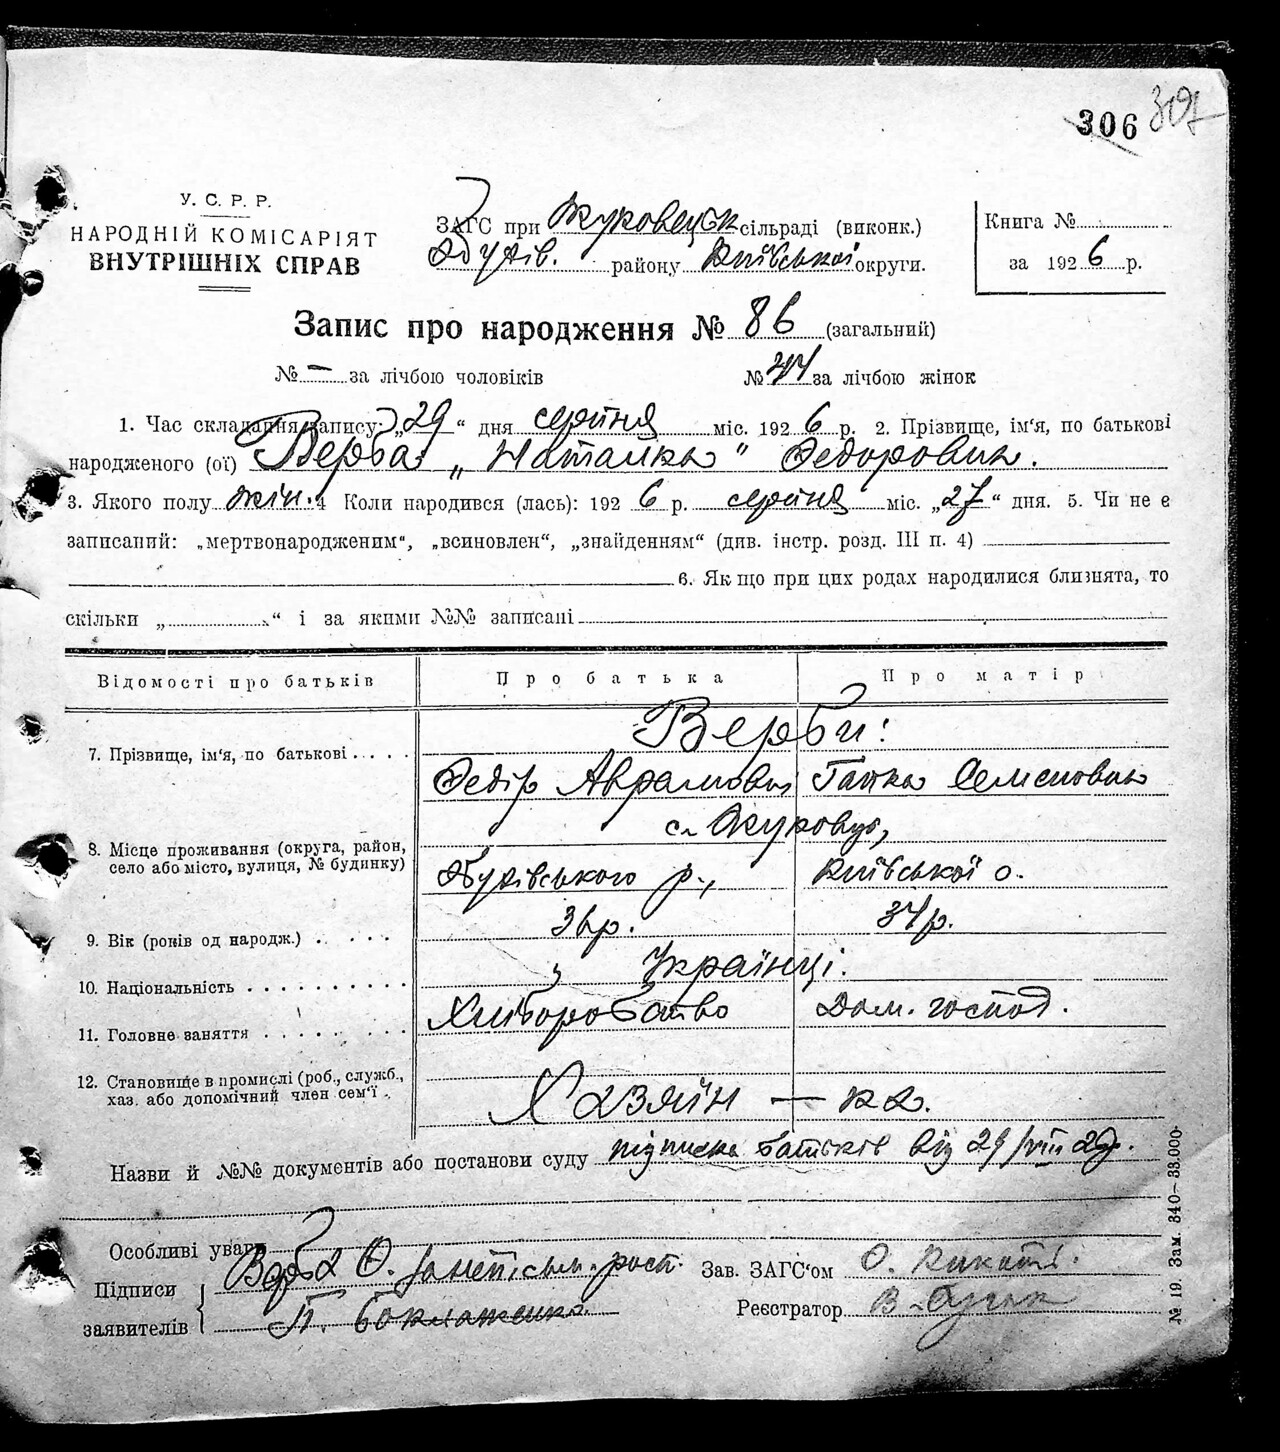 306 307
У. С. Р. Р.
НАРОДНІЙ КОМІСАРІЯТ
ВНУТРІШНІХ СПРАВ
ЗАГС при Жуковецьк сільраді (виконк.)
Обухів. району Київської округи.
Книга №
за 1926 р.
Запис про народження № 86 (загальний)
№ — за лічбою чоловіків № 44 за лічбою жінок
1. Час складання запису: „29“ дня серпня міс. 1926 р. 2. Прізвище, ім‘я, по батькові
народженого (ої) Верба „Наталка“ Федоровна.
3. Якого полу жін. 4 Коли народився (лась): 1926 р. серпня міс. „27“ дня. 5. Чи не є
записаний: „мертвонародженим“, „всиновлен“, „знайденням“ (див. інстр. розд. III п. 4)
6. Якщо при цих родах народилися близнята, то
скільки „ “ і за якими №№ записані
Відомості про батьків Про батька Про матір
Верби:
7. Прізвище, ім‘я, по батькові . . . .
Федір Аврамович Гапка Семеновна
с. Жуковці,
8. Місце проживання (округа, район,
село або місто, вулиця, № будинку)
Обухівського р., Київської о.
9. Вік (років од народж.) . . . . . 36 р. 34 р.
Українці.
10. Національність . . . . . . . . . .
11. Головне заняття . . . . . . . . Хліборобство Дом. господ.
12. Становище в промислі (роб., служб.,
хаз. або допомічний член сем‘ї .
Хазяїн — ка.
Назви й №№ документів або постанови суду підписка батьків від 29/VIII 26р.
Особливі уваги
Підписи
заявителів
Верба Ф.
П.
Зав. ЗАГС‘ом О.
Реєстратор В.
№ 19. Зам. 340—33.000